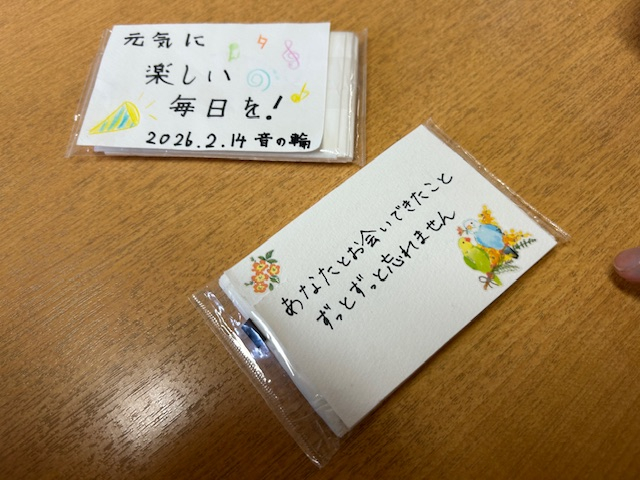 元気に
楽しい
毎日を!
2026.2.14 音の輪
あなたとお会いできたこと
ずっとずっと忘れません